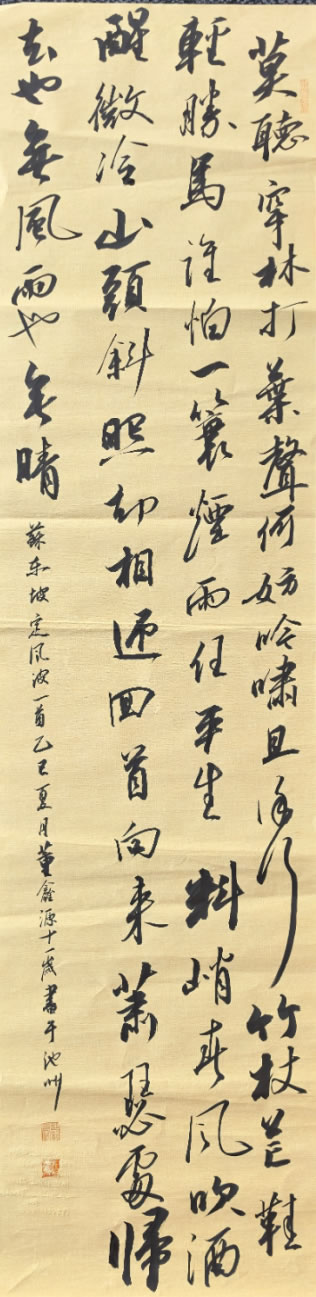 莫聽穿林打葉聲何妨吟嘯且徐行竹杖芒鞋
輕勝馬誰怕一簑煙雨任平生料峭春風吹酒
醒微冷山頭斜照却相迎回首向來蕭瑟處歸
去也無風雨也無晴
蘇東坡定風波一首乙巳夏月董鑫源十一歲書于池州